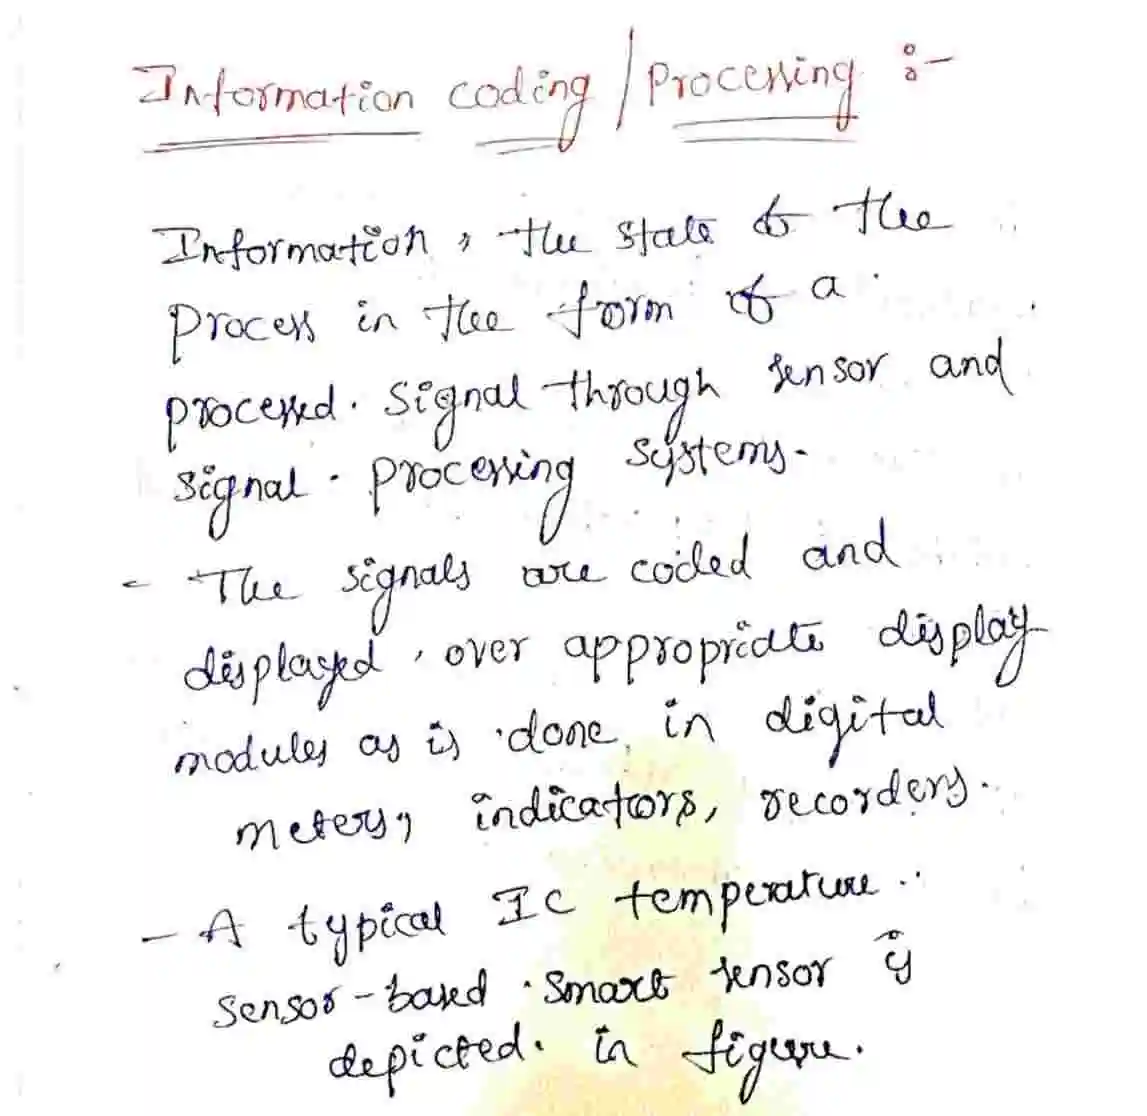 Information coding / Processing :-
Information, the state of the
process in the form of a
processed signal through sensor and
signal processing systems.
- The signals are coded and
displayed, over appropriate display
modules as is done in digital
meters, indicators, recorders.
- A typical IC temperature
sensor-based smart sensor is
depicted in figure.